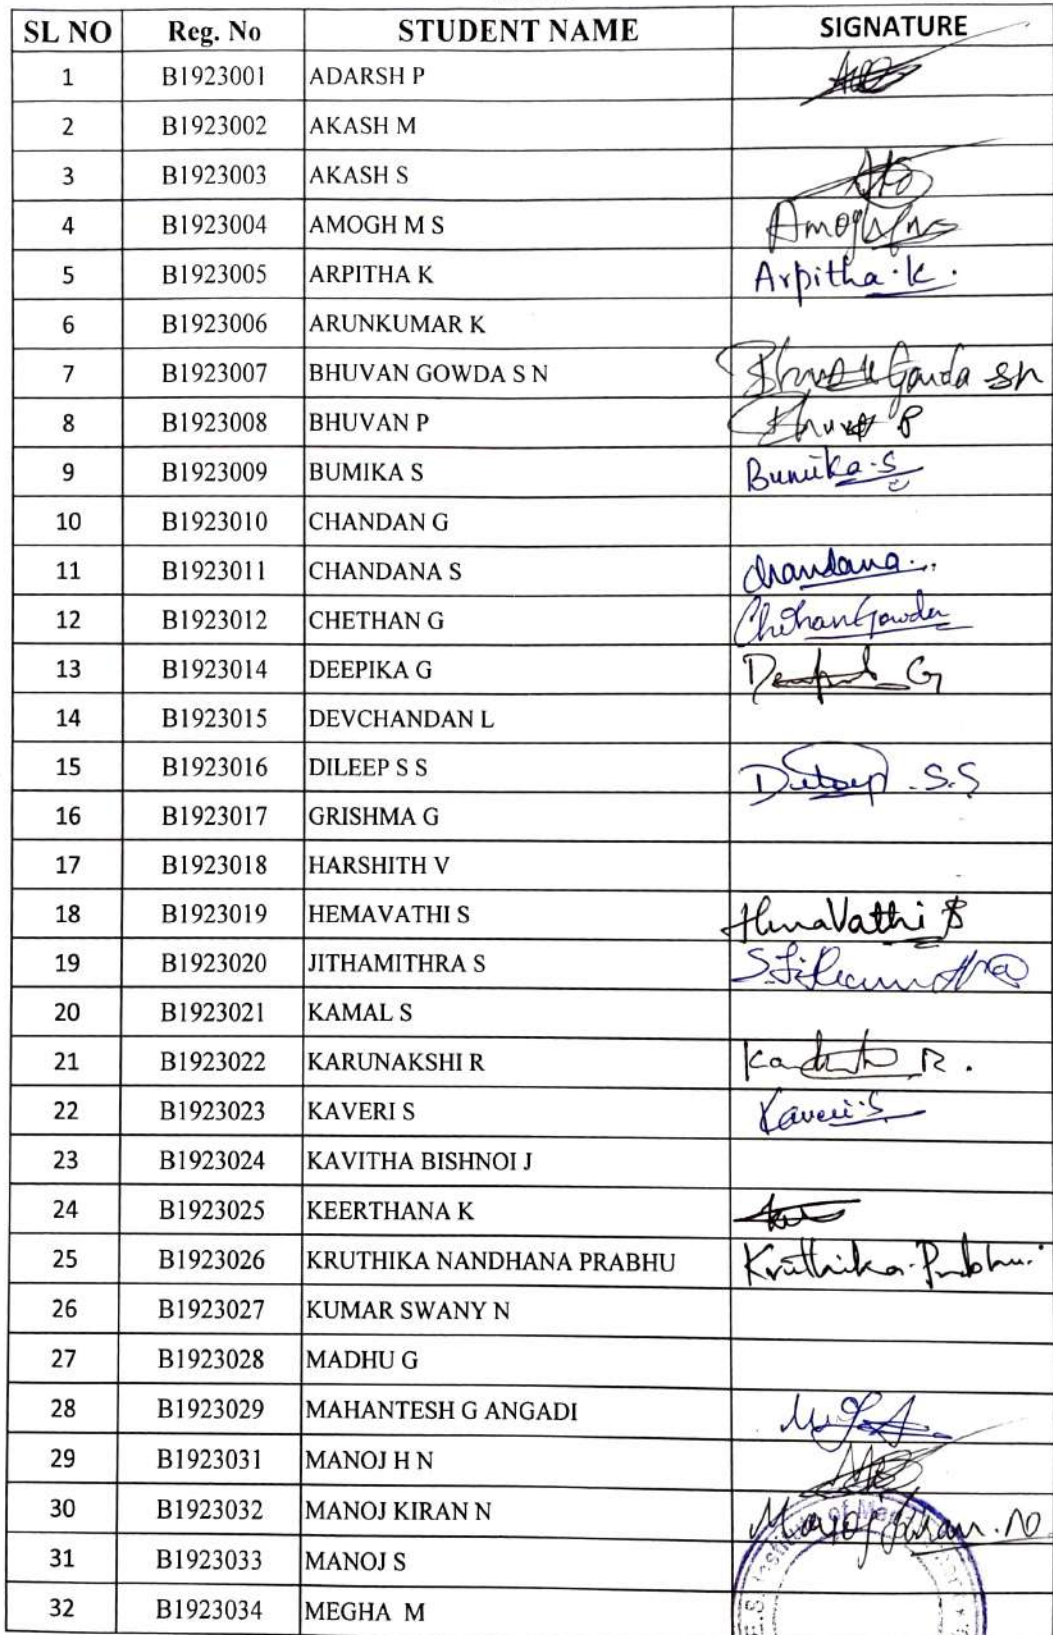 SL NO Reg. No STUDENT NAME SIGNATURE
1 B1923001 ADARSH P
2 B1923002 AKASH M
3 B1923003 AKASH S
4 B1923004 AMOGH M S Amogh
5 B1923005 ARPITHA K Arpitha.K.
6 B1923006 ARUNKUMAR K
7 B1923007 BHUVAN GOWDA S N Gowda SN
8 B1923008 BHUVAN P Bhuvan P
9 B1923009 BUMIKA S Bumika.S
10 B1923010 CHANDAN G
11 B1923011 CHANDANA S Chandana..
12 B1923012 CHETHAN G Chethan Gowda
13 B1923014 DEEPIKA G G
14 B1923015 DEVCHANDAN L
15 B1923016 DILEEP S S Dileep .S.S
16 B1923017 GRISHMA G
17 B1923018 HARSHITH V
18 B1923019 HEMAVATHI S HemaVathi S
19 B1923020 JITHAMITHRA S
20 B1923021 KAMAL S
21 B1923022 KARUNAKSHI R R.
22 B1923023 KAVERI S Kaveri.S
23 B1923024 KAVITHA BISHNOI J
24 B1923025 KEERTHANA K
25 B1923026 KRUTHIKA NANDHANA PRABHU Kruthika.Prabhu.
26 B1923027 KUMAR SWANY N
27 B1923028 MADHU G
28 B1923029 MAHANTESH G ANGADI
29 B1923031 MANOJ H N
30 B1923032 MANOJ KIRAN N Manoj Kiran.N
31 B1923033 MANOJ S
32 B1923034 MEGHA M